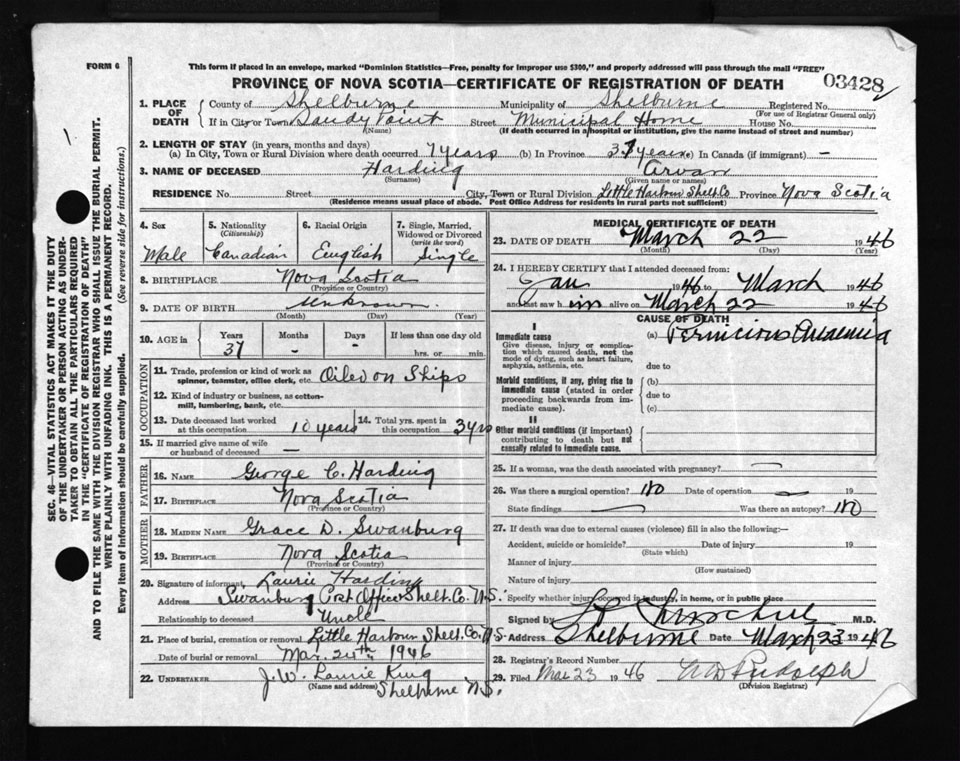 FORM 6
This form if placed in an envelope, marked "Dominion Statistics—Free, penalty for improper use $300," and properly addressed will pass through the mail "FREE"
PROVINCE OF NOVA SCOTIA—CERTIFICATE OF REGISTRATION OF DEATH
03428
1. PLACE OF DEATH
County of Shelburne Municipality of Shelburne Registered No.
(For use of Registrar General only)
If in City or Town Sandy Point Street Municipal Home House No.
(Name) (If death occurred in a hospital or institution, give the name instead of street and number)
2. LENGTH OF STAY (in years, months and days)
(a) In City, Town or Rural Division where death occurred 7 years (b) In Province 37 years (c) In Canada (if immigrant) —
3. NAME OF DECEASED Harding Arvan
(Surname) (Given name or names)
RESIDENCE No. Street City, Town or Rural Division Little Harbour Shelb. Co Province Nova Scotia
(Residence means usual place of abode. Post Office Address for residents in rural parts not sufficient)
4. Sex Male
5. Nationality (Citizenship) Canadian
6. Racial Origin English
7. Single, Married, Widowed or Divorced (write the word) Single
8. BIRTHPLACE Nova Scotia
(Province or Country)
9. DATE OF BIRTH Unknown
(Month) (Day) (Year)
10. AGE in Years 37 Months - Days - If less than one day old hrs. or min.
OCCUPATION
11. Trade, profession or kind of work as spinner, teamster, office clerk, etc. Oiled on Ships
12. Kind of industry or business, as cotton-mill, lumbering, bank, etc.
13. Date deceased last worked at this occupation 10 years
14. Total yrs. spent in this occupation 3 yrs
15. If married give name of wife or husband of deceased —
FATHER
16. NAME George C. Harding
17. BIRTHPLACE Nova Scotia
(Province or Country)
MOTHER
18. MAIDEN NAME Grace D. Swanburg
19. BIRTHPLACE Nova Scotia
(Province or Country)
20. Signature of informant Laurie Harding
Address Swanburg Post Office Shelb. Co. N.S.
Relationship to deceased Uncle
21. Place of burial, cremation or removal Little Harbour Shelb. Co. N.S.
Date of burial or removal Mar. 24th 1946
22. UNDERTAKER J. W. Laurie King
(Name and address) Shelburne N.S.
MEDICAL CERTIFICATE OF DEATH
23. DATE OF DEATH March 22 1946
(Month) (Day) (Year)
24. I HEREBY CERTIFY that I attended deceased from:
Jan 1946 to March 1946
and last saw him alive on March 22 1946
CAUSE OF DEATH
I
Immediate cause
Give disease, injury or complication which caused death, not the mode of dying, such as heart failure, asphyxia, asthenia, etc.
(a) Pernicious Anaemia
due to
Morbid conditions, if any, giving rise to immediate cause (stated in order proceeding backwards from immediate cause).
(b)
due to
(c)
II
Other morbid conditions (if important) contributing to death but not causally related to immediate cause.
25. If a woman, was the death associated with pregnancy? —
26. Was there a surgical operation? no Date of operation — 19
State findings — Was there an autopsy? no
27. If death was due to external causes (violence) fill in also the following:—
Accident, suicide or homicide? Date of injury 19
(State which)
Manner of injury
(How sustained)
Nature of injury
Specify whether injury occurred in industry, in home, or in public place
Signed by Churchill M.D.
Address Shelburne Date March 23 1946
28. Registrar's Record Number
29. Filed Mar 23 1946 Rudolph
(Division Registrar)
SEC. 46—VITAL STATISTICS ACT MAKES IT THE DUTY
OF THE UNDERTAKER OR PERSON ACTING AS UNDER-
TAKER TO OBTAIN ALL THE PARTICULARS REQUIRED
IN THE "CERTIFICATE OF REGISTRATION OF DEATH"
AND TO FILE THE SAME WITH THE DIVISION REGISTRAR WHO SHALL ISSUE THE BURIAL PERMIT.
WRITE PLAINLY WITH UNFADING INK. THIS IS A PERMANENT RECORD.
Every item of information should be carefully supplied. (See reverse side for instructions.)